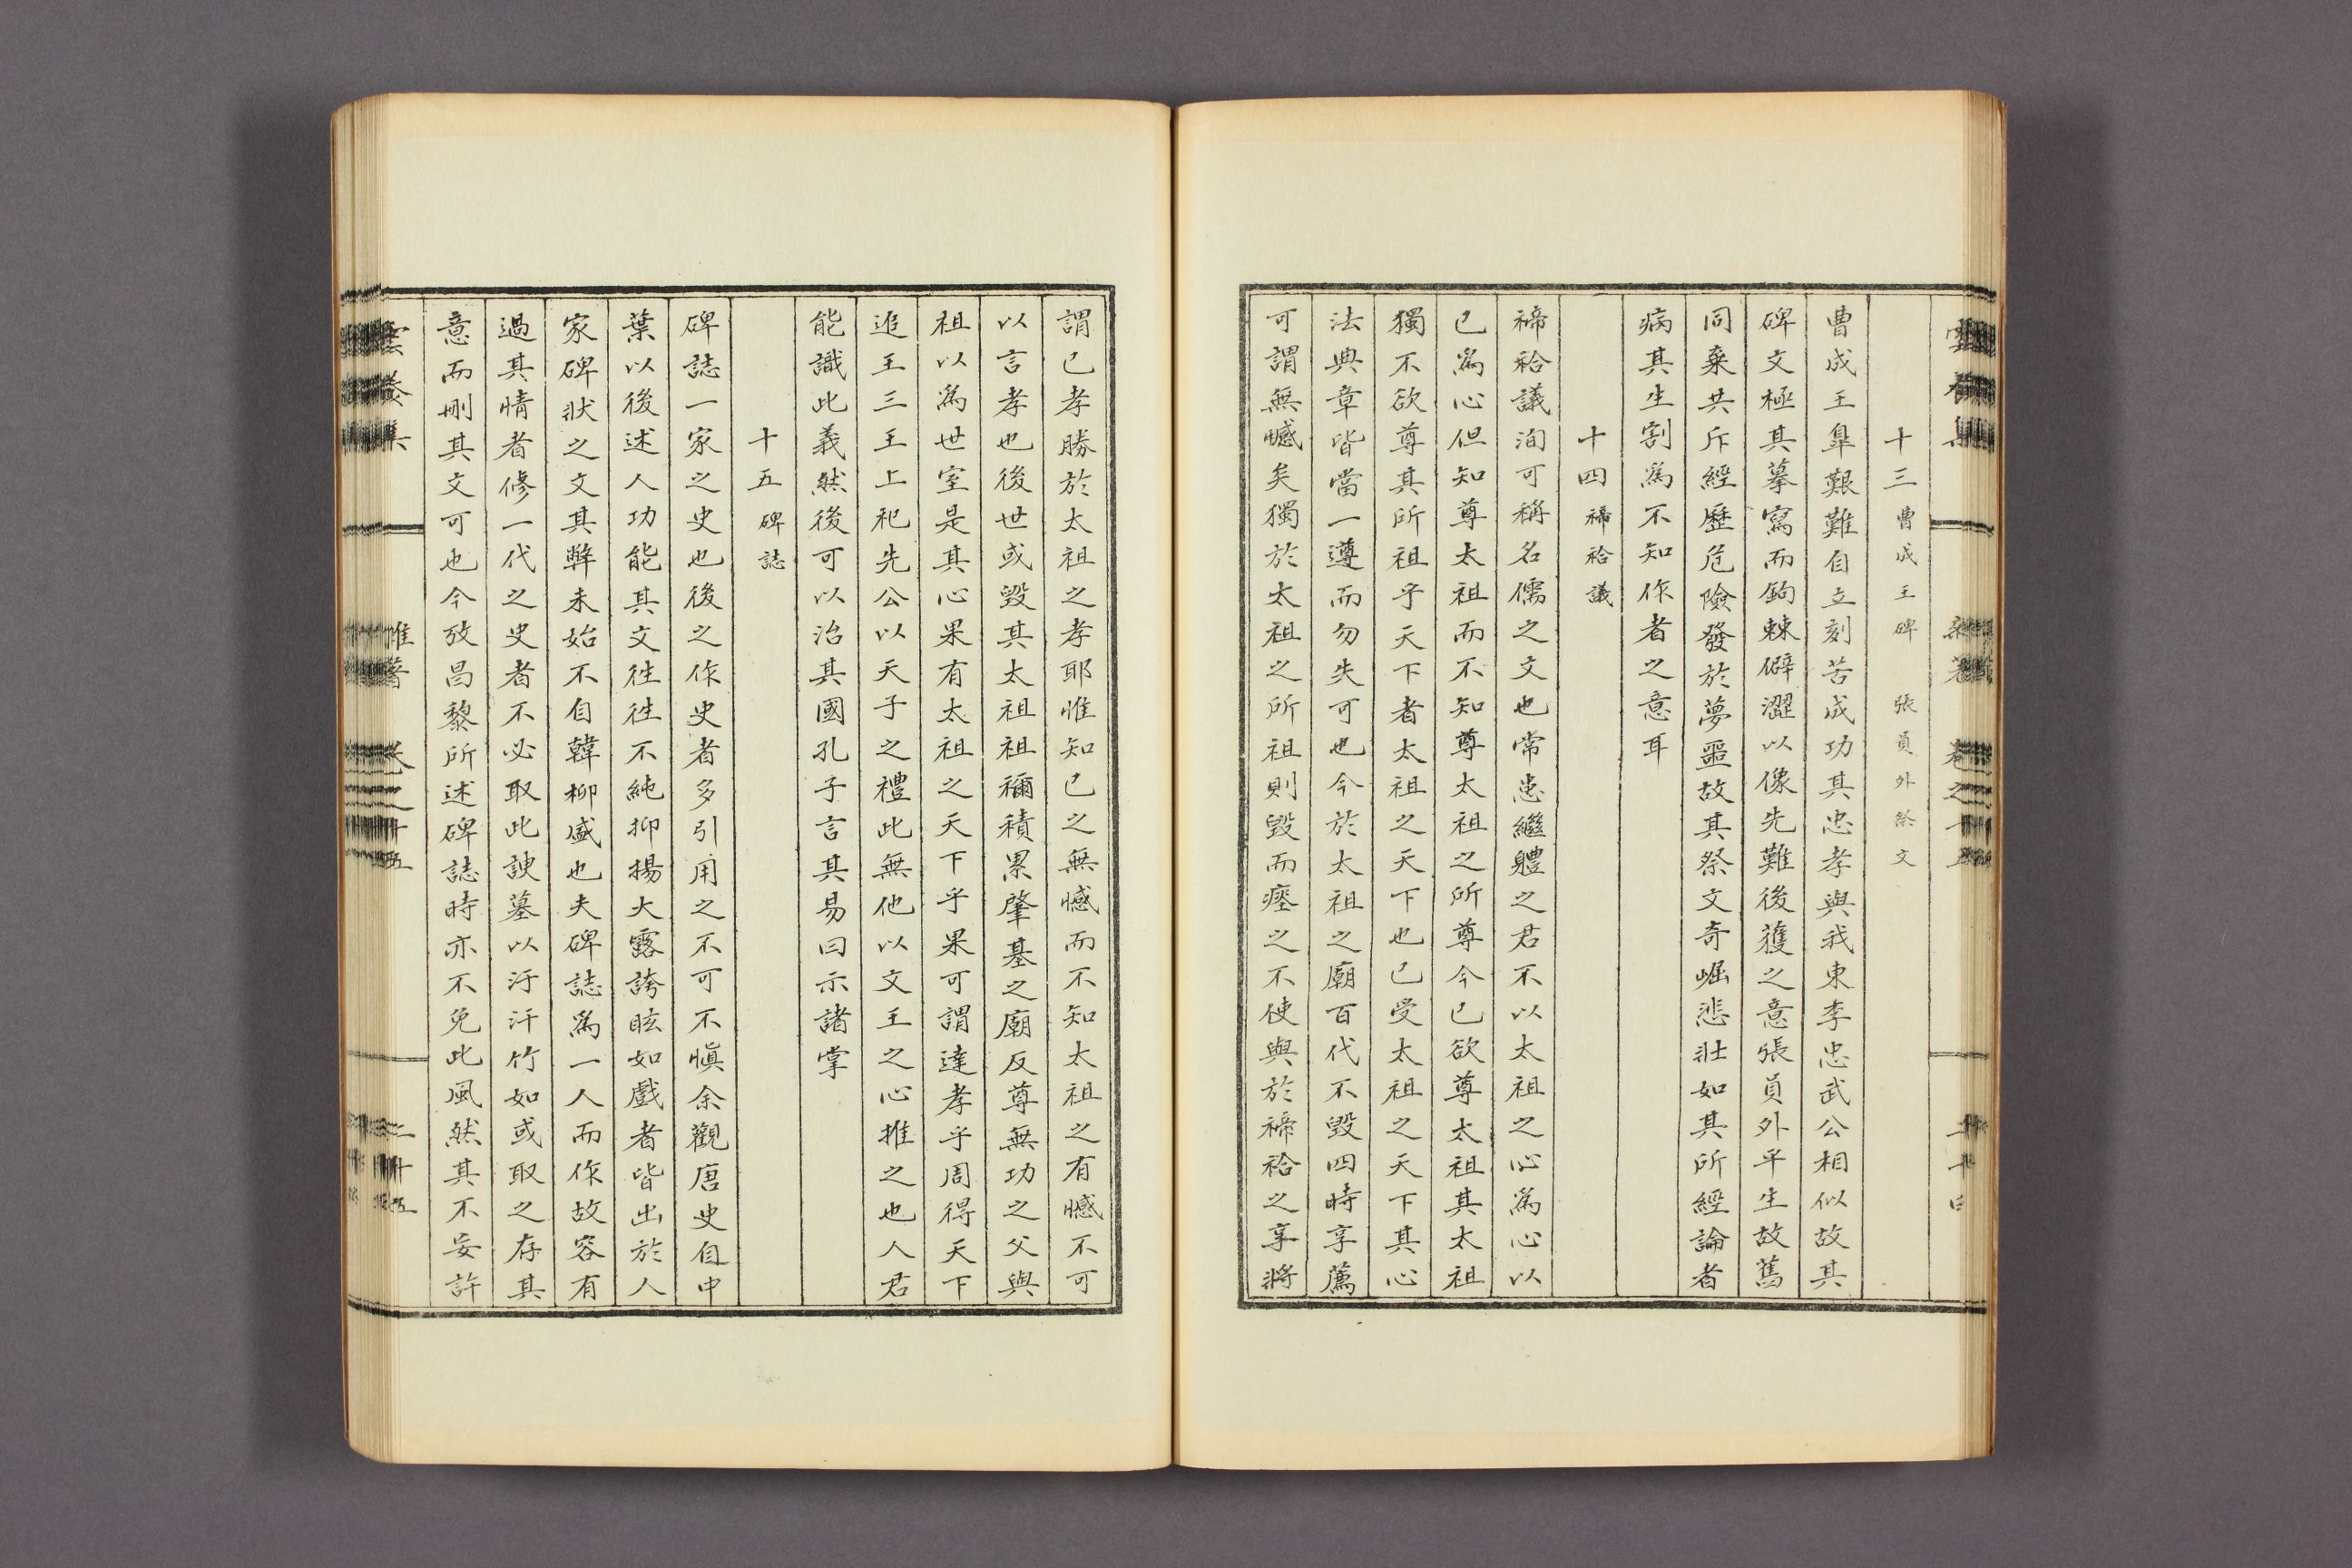 十三曹成王碑 張員外祭文
曹成王皐艱難自立刻苦成功其忠孝與我東李忠武公相似故其
碑文極其摹寫而鉤棘僻澀以像先難後獲之意張員外平生故舊
同棄共斥經歷危險發於夢噩故其祭文奇崛悲壯如其所經論者
病其生割爲不知作者之意耳
十四禘祫議
禘祫議洵可稱名儒之文也常患繼軆之君不以太祖之心爲心以
已爲心但知尊太祖而不知尊太祖之所尊今已欲尊太祖其太祖
獨不欲尊其所祖乎天下者太祖之天下也已受太祖之天下其心
法典章皆當一遵而勿失可也今於太祖之廟百代不毀四時享薦
可謂無憾矣獨於太祖之所祖則毀而瘞之不使與於禘祫之享將
謂已孝勝於太祖之孝耶惟知已之無憾而不知太祖之有憾不可
以言孝也後世或毀其太祖祖禰積累肇基之廟反尊無功之父與
祖以爲世室是其心果有太祖之天下乎果可謂達孝乎周得天下
追王三王上祀先公以天子之禮此無他以文王之心推之也人君
能識此義然後可以治其國孔子言其易曰示諸掌
十五碑誌
碑誌一家之史也後之作史者多引用之不可不愼余觀唐史自中
葉以後述人功能其文徃徃不純抑揚大露誇眩如戲者皆出於人
家碑狀之文其弊未始不自韓柳盛也夫碑誌爲一人而作故容有
過其情者修一代之史者不必取此諛墓以汙汗竹如或取之存其
意而刪其文可也今攷昌黎所述碑誌時亦不免此風然其不妄許